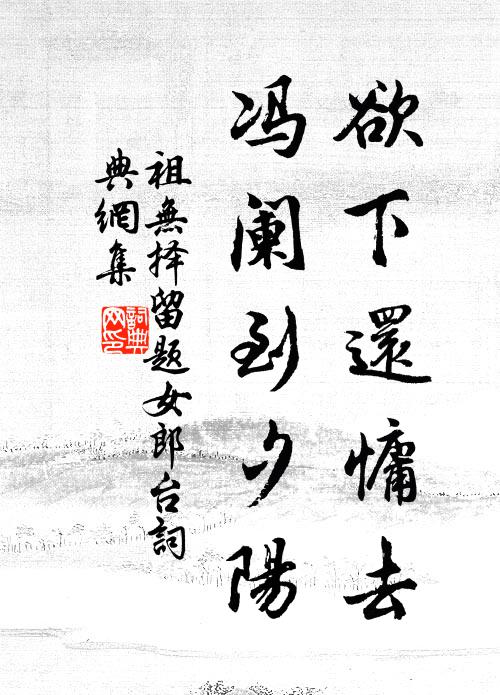 欲下還慵去
冯阑到夕陽
祖無择留题女郎台詞
典網集
詞典网印